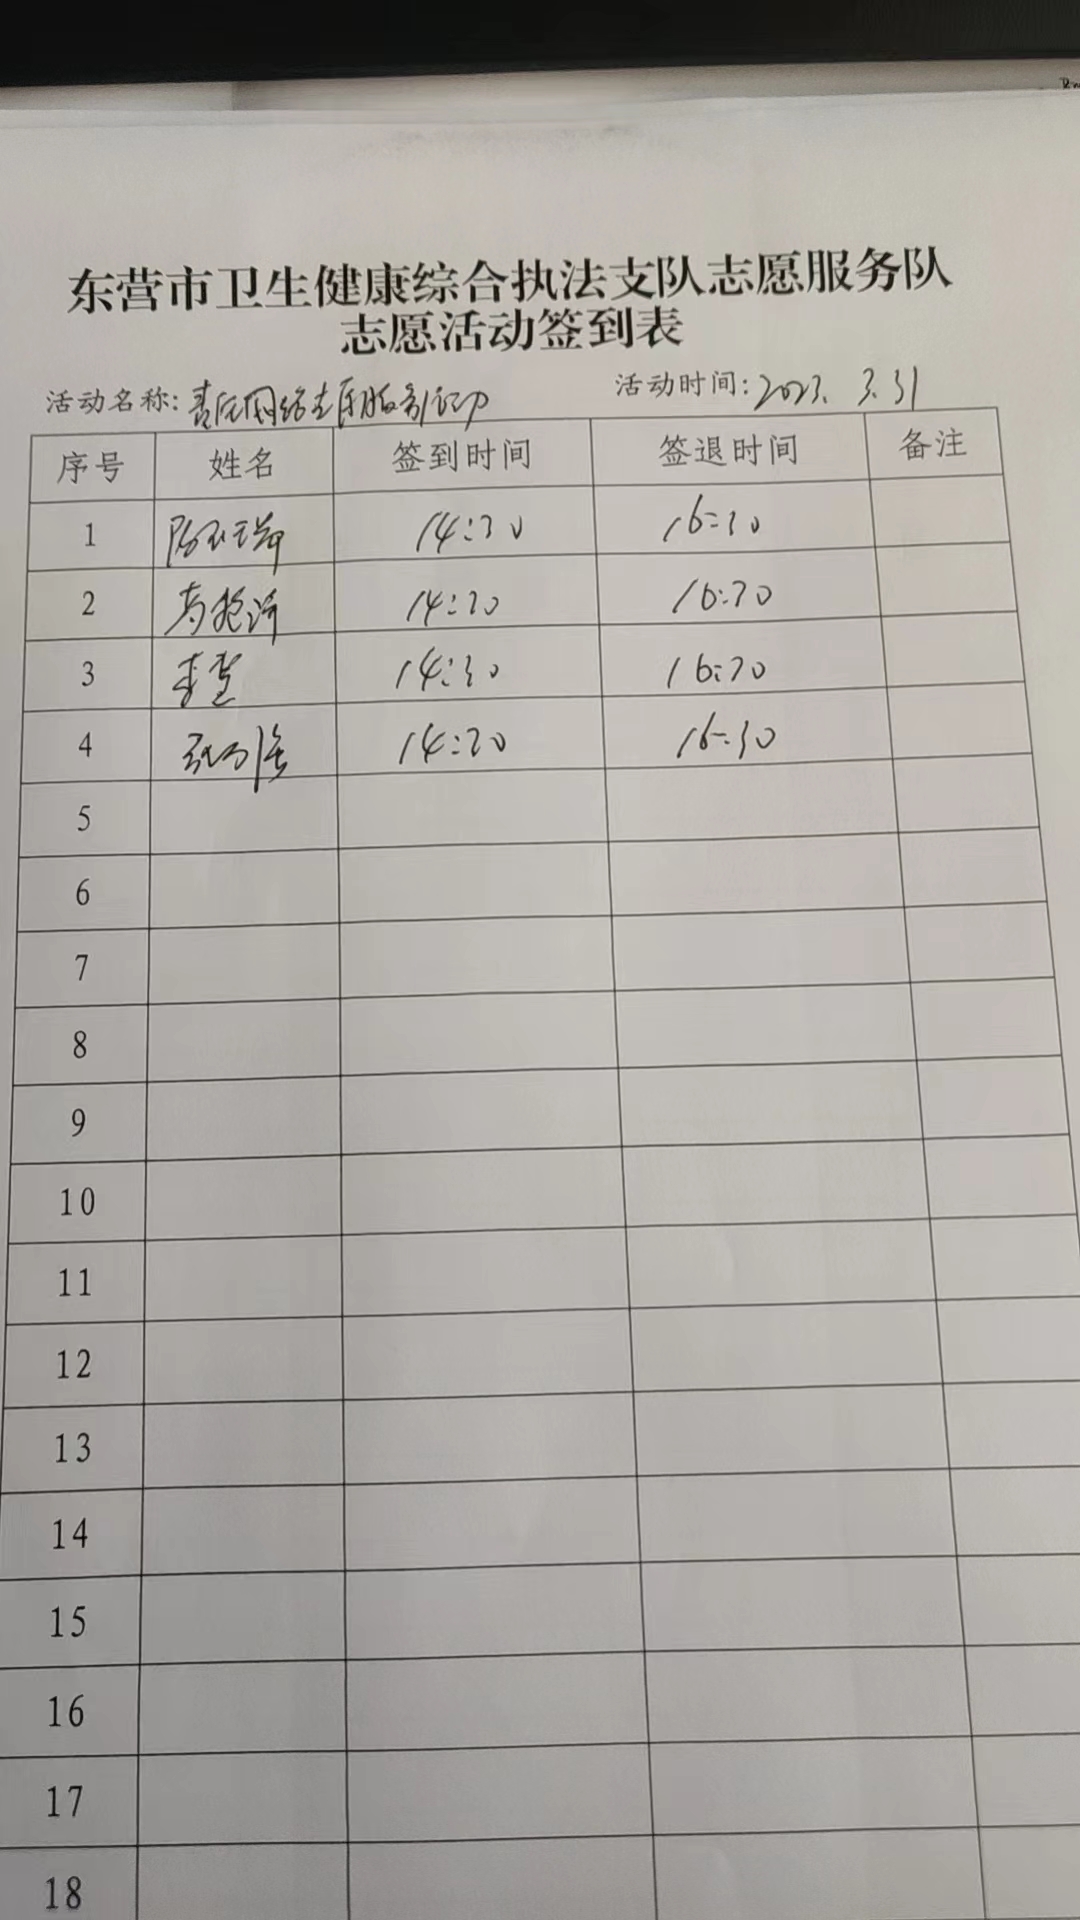 东营市卫生健康综合执法支队志愿服务队
志愿活动签到表
活动名称: 责任网络志愿服务活动 活动时间: 2023. 3. 31
序号 姓名 签到时间 签退时间 备注
1 14:30 16:30
2 14:30 16:30
3 李萱 14:30 16:30
4 14:30 16:30
5
6
7
8
9
10
11
12
13
14
15
16
17
18